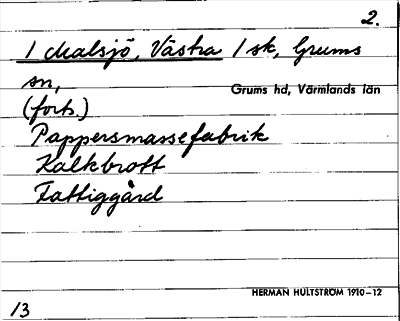 2.
1 Malsjö, Västra 1 sk, Grums
sn,
Grums hd, Värmlands län
(forts.)
Pappersmassefabrik
Kalkbrott
Fattiggård
HERMAN HULTSTRÖM 1910–12
13